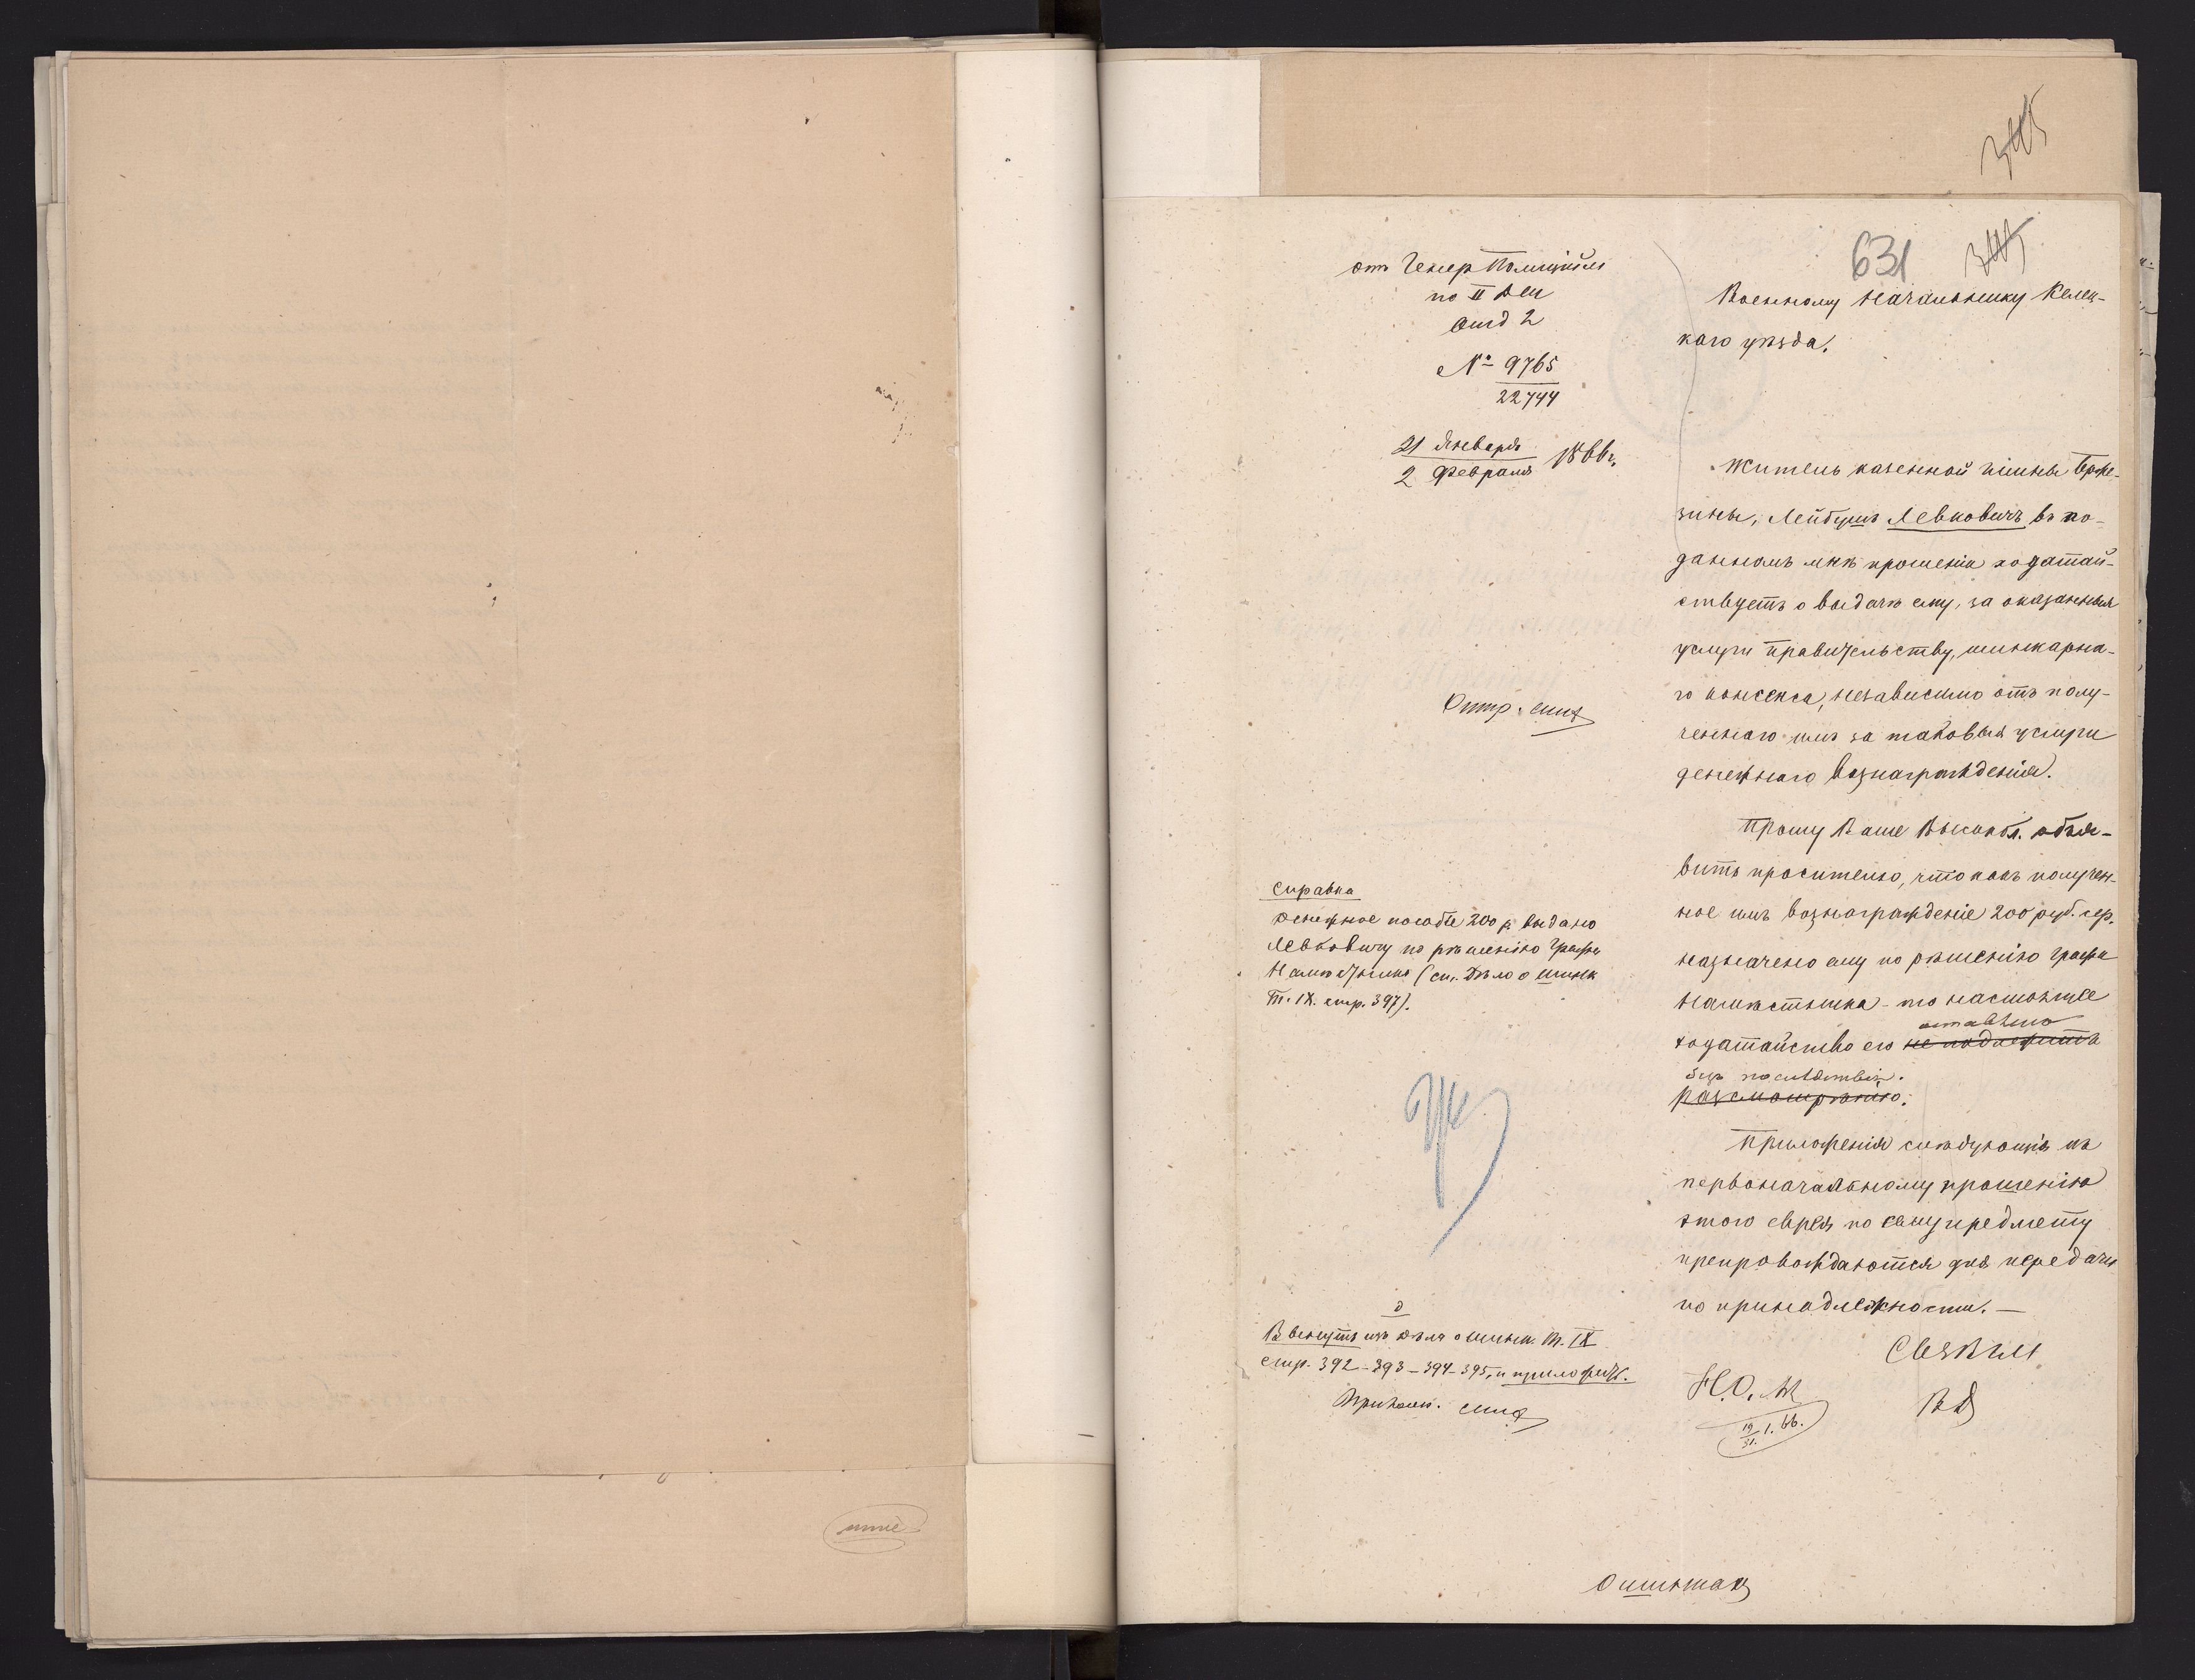 631
отъ Генер Полиціймей
по II Дѣл
Отд 2
№ 9765
22744
21 Января
2 Февраля 1866 г.
Отпр.
Справка
денежное пособіе 200 р. выдано
Левковичу по рѣшенію Графа
Намѣстника (см. Дѣло о шинк
т. IX. стр. 397).
изъ дѣла о шинк. т. IX
стр. 392–393–394–395, и прилож.
Военному Начальнику Келец-
каго уѣзда.
Житель казенной гмины Бже-
зины, Лейбушъ Левковичъ въ по-
данномъ мнѣ прошеніи ходатай-
ствуетъ о выдачѣ ему, за оказанныя
услуги правительству, шинкарна-
го консенса, независимо отъ полу-
ченнаго имъ за таковыя услуги
денежнаго вознагражденія.
Прошу Ваше Высокобл. объя-
вить просителю, что какъ получен-
ное имъ вознагражденіе 200 руб. сер.
назначено ему по рѣшенію Графа
Намѣстника – то настоящее
оставлено
ходатайство его не подлежитъ
безъ послѣдствій.
разсмотрѣнію.
Приложенія слѣдующія къ
первоначальному прошенію
этого еврея по сему предмету
препровождаются для передачи
по принадлежности. —
Н.О.М
19/31. I. 66.